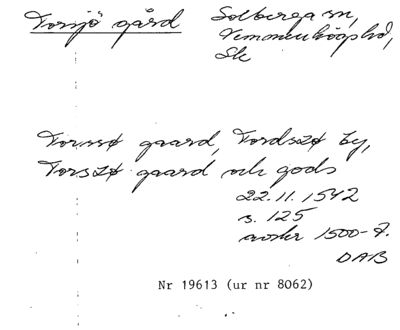 Torsjö gård Solberga sn,
Vemmenhögs hd,
Sk
Torssø gaard, Tordszø by,
Torszø gaard och gods
22.11.1542
s. 125
avskr 1500-t.
DAB
Nr 19613 (ur nr 8062)